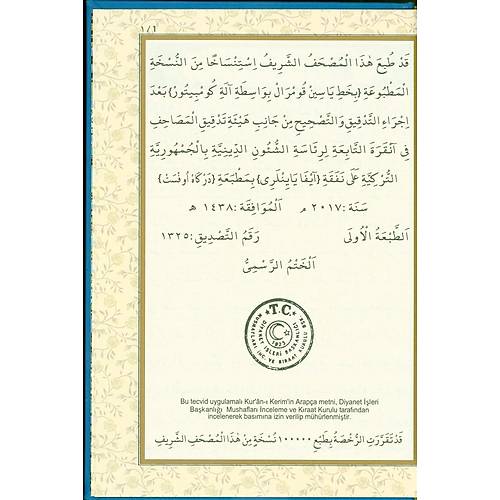 ١/١
قَدْ طُبِعَ هٰذَا الْمُصْحَفُ الشَّرِيفُ اِسْتِنْسَاخًا مِنَ النُّسْخَةِ
الْمَطْبُوعَةِ {بِخَطِّ يَاسِينْ قُومْرَالْ بِوَاسِطَةِ آلَةِ كُومْبِيتُورْ} بَعْدَ
اِجْرَاءِ التَّدْقِيقِ وَالتَّصْحِيحِ مِنْ جَانِبِ هَيْئَةِ تَدْقِيقِ الْمَصَاحِفِ
فِى اَنْقَرَةَ التَّابِعَةِ لِرِئَاسَةِ الشُّئُونِ الدِّينِيَّةِ بِالْجُمْهُورِيَّةِ
التُّرْكِيَّةِ عَلٰى نَفَقَةِ {آيْفَا يَايِنْلَرِى} بِمَطْبَعَةِ {دَرْكَاهْ اُوفْسَتْ}
سَنَةَ :٢٠١٧ م اَلْمُوَافِقَةَ :١٤٣٨ هـ
اَلطَّبْعَةُ الْاُولٰى رَقَمُ التَّصْدِيقِ :١٣٢٥
اَلْخَتْمُ الرَّسْمِىُّ
★T.C.★
MUSHAFLARI İNC. VE KIRAAT KURULU BŞK.
DİYANET İŞLERİ BAŞKANLIĞI
1923
Bu tecvid uygulamalı Kur'ân-ı Kerim'in Arapça metni, Diyanet İşleri
Başkanlığı Mushafları İnceleme ve Kıraat Kurulu tarafından
incelenerek basımına izin verilip mühürlenmiştir.
قَدْ تَقَرَّرَتِ الرُّخْصَةُ بِطَبْعِ ١٠٠٠٠٠ نُسْخَةٍ مِنْ هٰذَا الْمُصْحَفِ الشَّرِيفِ